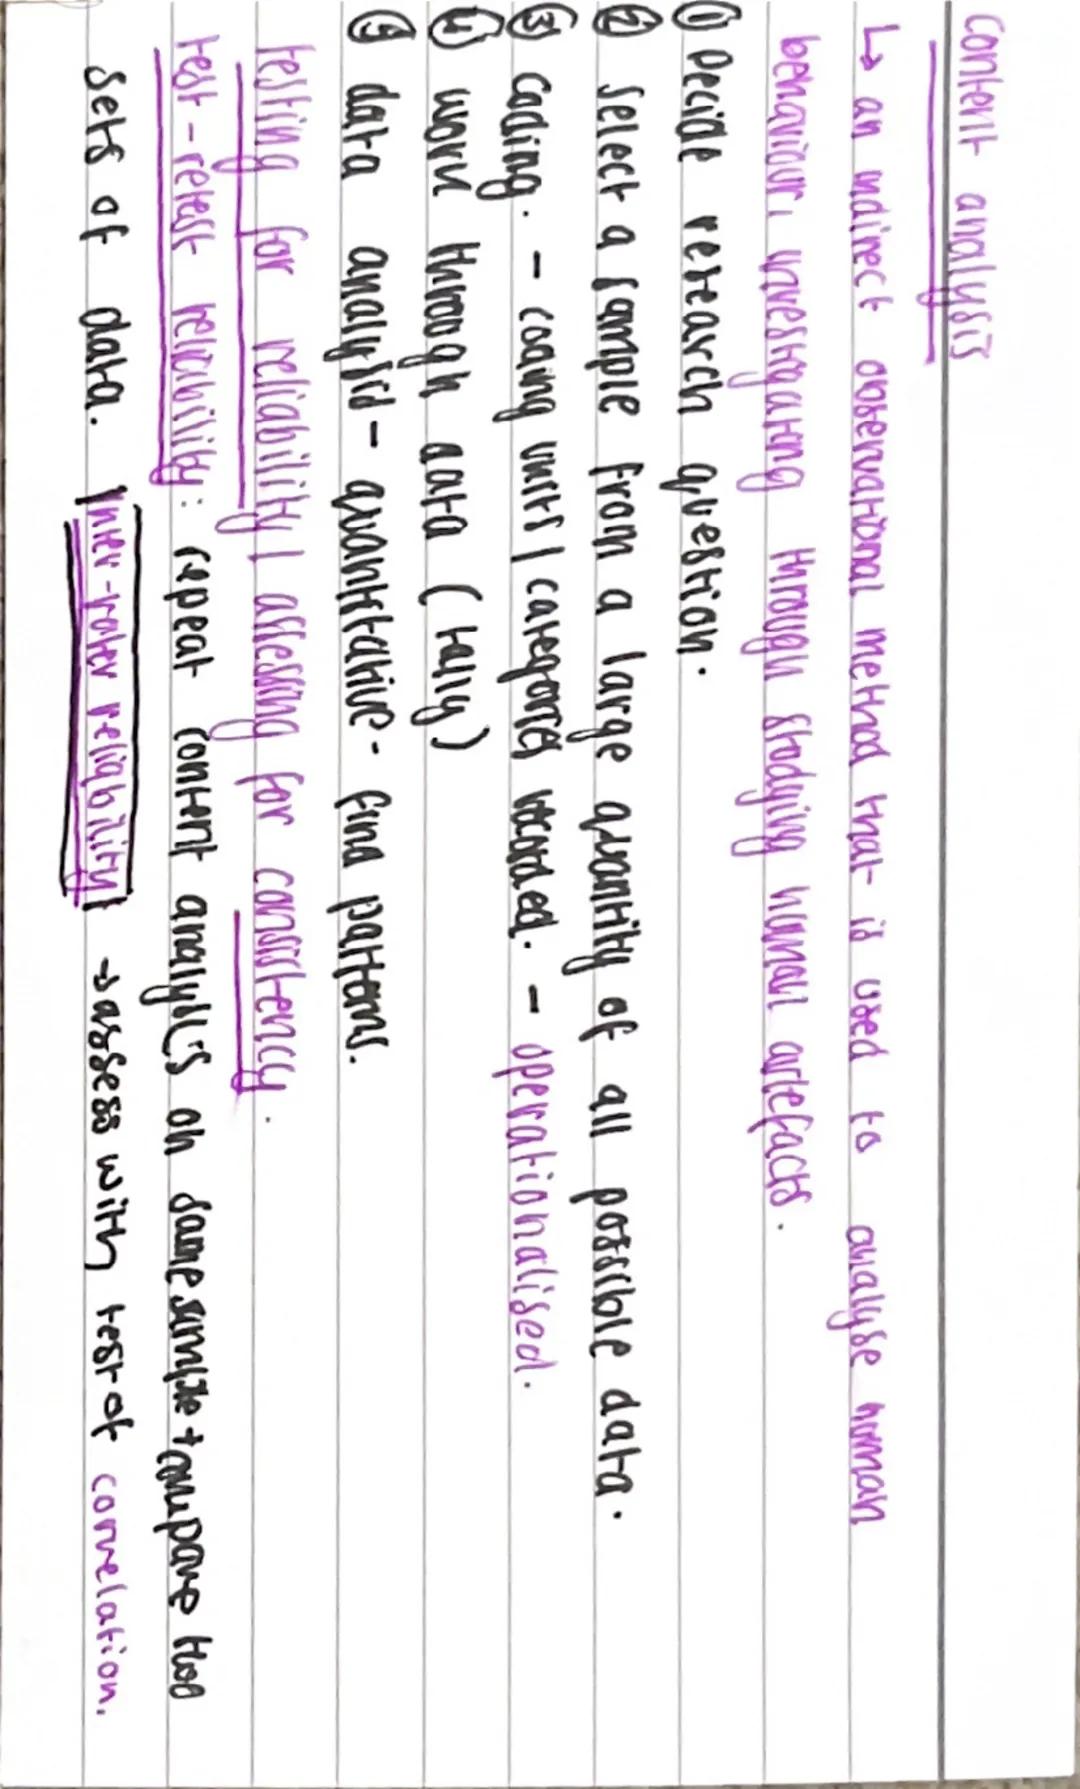 Content analysis
↳ an indirect observational method that is used to analyse human
behaviour, investigating through studying human artefacts.
① Decide research question.
② select a sample from a large quantity of all possible data.
③ coding. - coding units / categories recorded. - operationalised.
④ work through data (tally)
⑤ data analysis - quantitative - find patterns.
testing for reliability / assessing for consistency.
test-retest reliability: repeat content analysis on same sample + compare two
sets of data. Inter-rater reliability → assess with test of correlation.